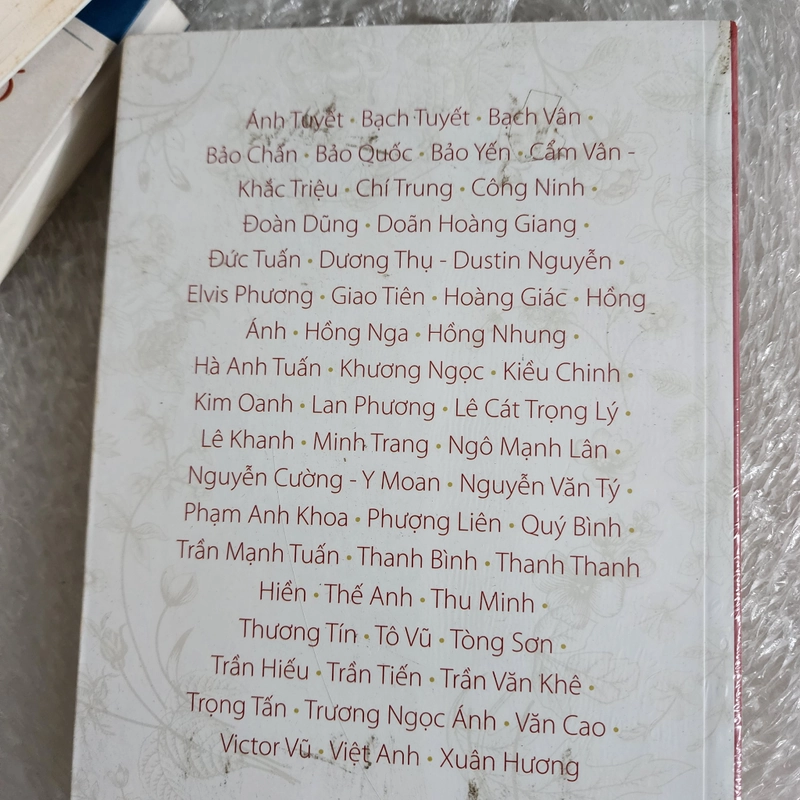 Ánh Tuyết • Bạch Tuyết • Bạch Vân •
Bảo Chấn • Bảo Quốc • Bảo Yến • Cẩm Vân -
Khắc Triệu • Chí Trung • Công Ninh •
Đoàn Dũng • Doãn Hoàng Giang •
Đức Tuấn • Dương Thụ - Dustin Nguyễn •
Elvis Phương • Giao Tiên • Hoàng Giác • Hồng
Ánh • Hồng Nga • Hồng Nhung •
Hà Anh Tuấn • Khương Ngọc • Kiều Chinh •
Kim Oanh • Lan Phương • Lê Cát Trọng Lý •
Lê Khanh • Minh Trang • Ngô Mạnh Lân •
Nguyễn Cường - Y Moan • Nguyễn Văn Tý •
Phạm Anh Khoa • Phượng Liên • Quý Bình •
Trần Mạnh Tuấn • Thanh Bình • Thanh Thanh
Hiền • Thế Anh • Thu Minh •
Thương Tín • Tô Vũ • Tòng Sơn •
Trần Hiếu • Trần Tiến • Trần Văn Khê •
Trọng Tấn • Trương Ngọc Ánh • Văn Cao •
Victor Vũ • Việt Anh • Xuân Hương